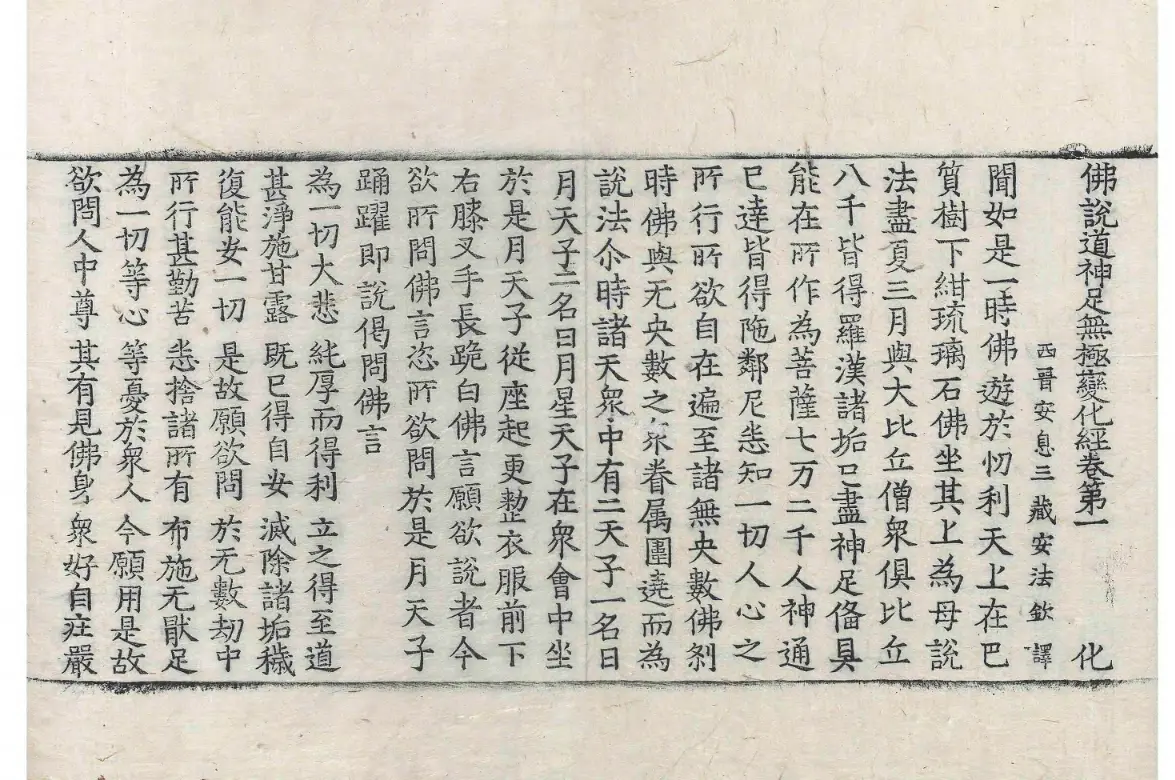 佛說道神足無極變化經卷第一 化
西晉安息三藏安法欽譯
聞如是一時佛遊於忉利天上在巴
質樹下紺琉璃石佛坐其上為母說
法盡夏三月與大比丘僧眾俱比丘
八千皆得羅漢諸垢已盡神足俻具
能在所作為菩薩七万二千人神通
已達皆得陁鄰尼悉知一切人心之
所行所欲自在遍至諸無央數佛剎
時佛與无央數之眾眷属圍遶而為
說法尒時諸天眾中有二天子一名曰
月天子二名曰月星天子在眾會中坐
於是月天子從座起更整衣服前下
右膝叉手長跪白佛言願欲說者今
欲所問佛言恣所欲問於是月天子
踊躍即說偈問佛言
為一切大悲 純厚而得利 立之得至道
甚淨施甘露 既已得自安 滅除諸垢穢
復能安一切 是故願欲問 於无數劫中
所行甚勤苦 悉捨諸所有 布施无猒足
為一切等心 等憂於眾人 今願用是故
欲問人中尊 其有見佛身 眾好自庄嚴